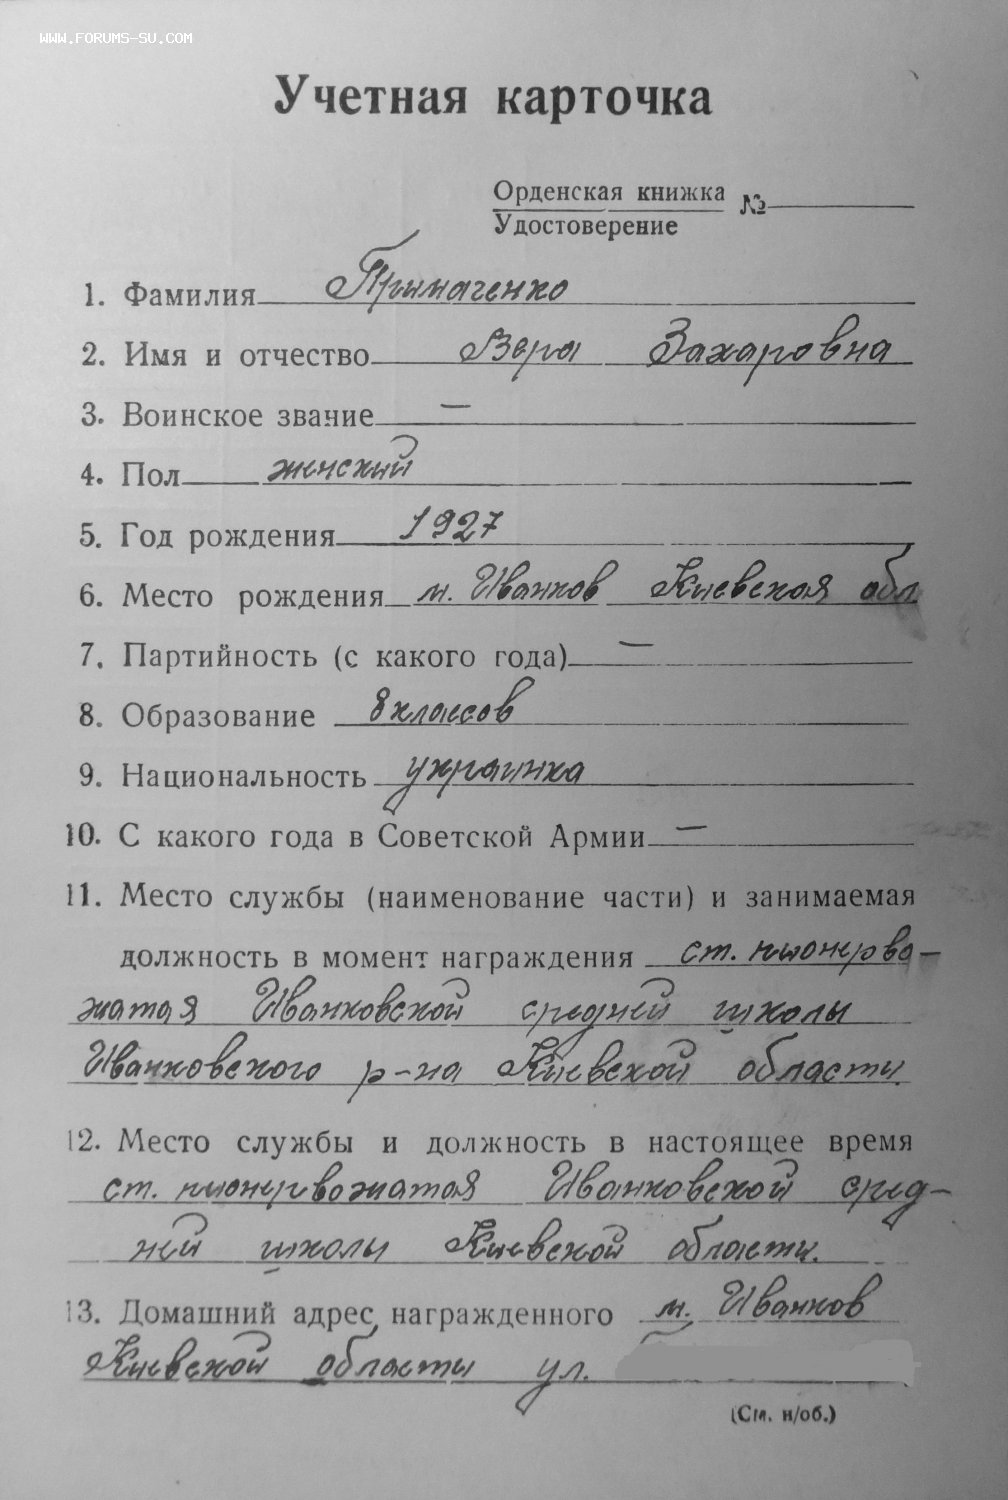 WWW.FORUMS-SU.COM
Учетная карточка
Орденская книжка
Удостоверение №
1. Фамилия Примаченко
2. Имя и отчество Вера Захаровна
3. Воинское звание —
4. Пол женский
5. Год рождения 1927
6. Место рождения м. Иванков Киевская обл
7. Партийность (с какого года) —
8. Образование 8 классов
9. Национальность украинка
10. С какого года в Советской Армии —
11. Место службы (наименование части) и занимаемая
должность в момент награждения ст. пионерво-
жатая Иванковской средней школы
Иванковского р-на Киевской области.
12. Место службы и должность в настоящее время
ст. пионервожатая Иванковской сред-
ней школы Киевской области.
13. Домашний адрес награжденного м. Иванков
Киевской области ул.
(См. н/об.)